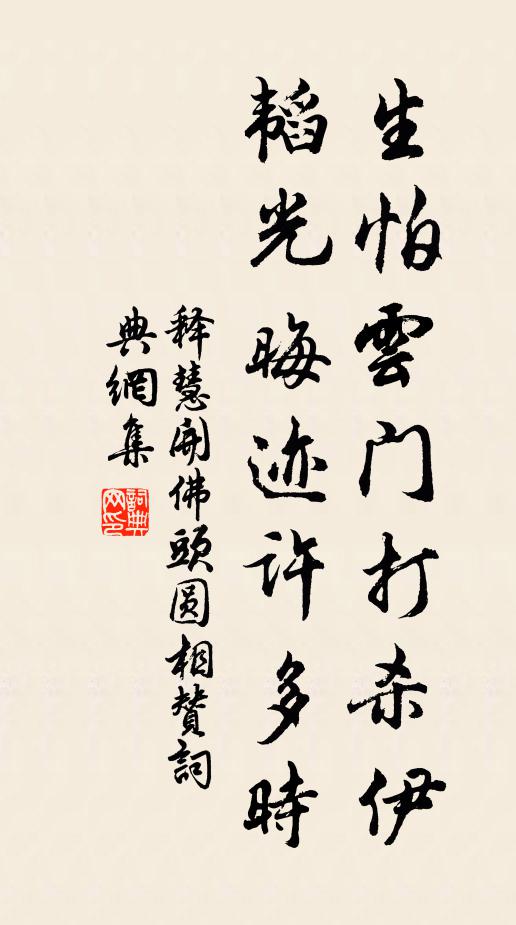 生怕雲門打杀伊
韬光晦迹许多時
释慧開佛頭圆相赞詞
典網集
詞典网印